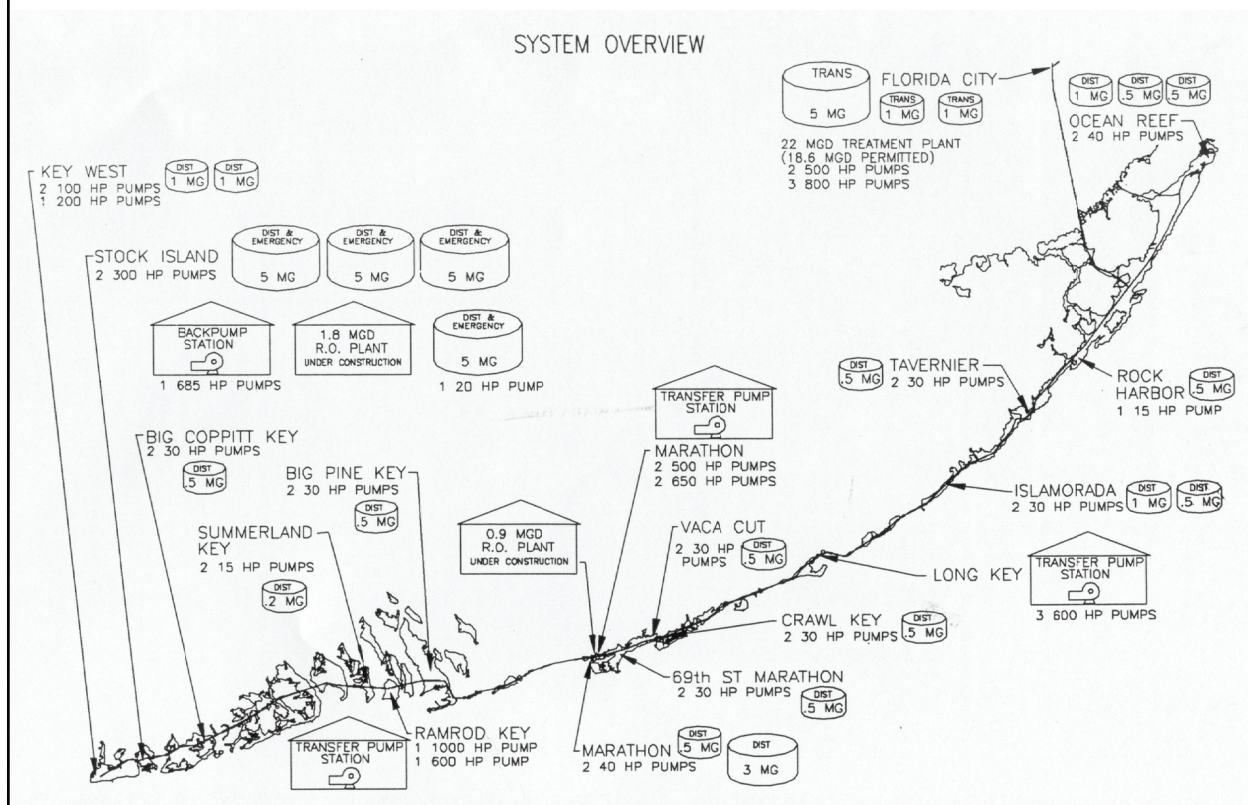 SYSTEM OVERVIEW
TRANS
5 MG
FLORIDA CITY
TRANS
1 MG
TRANS
1 MG
22 MGD TREATMENT PLANT
(18.6 MGD PERMITTED)
2 500 HP PUMPS
3 800 HP PUMPS
DIST
1 MG
DIST
.5 MG
DIST
.5 MG
OCEAN REEF
2 40 HP PUMPS
KEY WEST
2 100 HP PUMPS
1 200 HP PUMPS
DIST
1 MG
DIST
1 MG
STOCK ISLAND
2 300 HP PUMPS
DIST &
EMERGENCY
5 MG
DIST &
EMERGENCY
5 MG
DIST &
EMERGENCY
5 MG
BACKPUMP
STATION
1 685 HP PUMPS
1.8 MGD
R.O. PLANT
UNDER CONSTRUCTION
DIST &
EMERGENCY
5 MG
1 20 HP PUMP
BIG COPPITT KEY
2 30 HP PUMPS
DIST
.5 MG
BIG PINE KEY
2 30 HP PUMPS
DIST
.5 MG
SUMMERLAND
KEY
2 15 HP PUMPS
DIST
.2 MG
TRANSFER PUMP
STATION
MARATHON
2 500 HP PUMPS
2 650 HP PUMPS
0.9 MGD
R.O. PLANT
UNDER CONSTRUCTION
VACA CUT
2 30 HP
PUMPS
DIST
.5 MG
DIST
.5 MG
TAVERNIER
2 30 HP PUMPS
ROCK
HARBOR
1 15 HP PUMP
DIST
.5 MG
ISLAMORADA
2 30 HP PUMPS
DIST
1 MG
DIST
.5 MG
LONG KEY
TRANSFER PUMP
STATION
3 600 HP PUMPS
CRAWL KEY
2 30 HP PUMPS
DIST
.5 MG
69th ST MARATHON
2 30 HP PUMPS
DIST
.5 MG
TRANSFER PUMP
STATION
RAMROD KEY
1 1000 HP PUMP
1 600 HP PUMP
MARATHON
2 40 HP PUMPS
DIST
.5 MG
DIST
3 MG